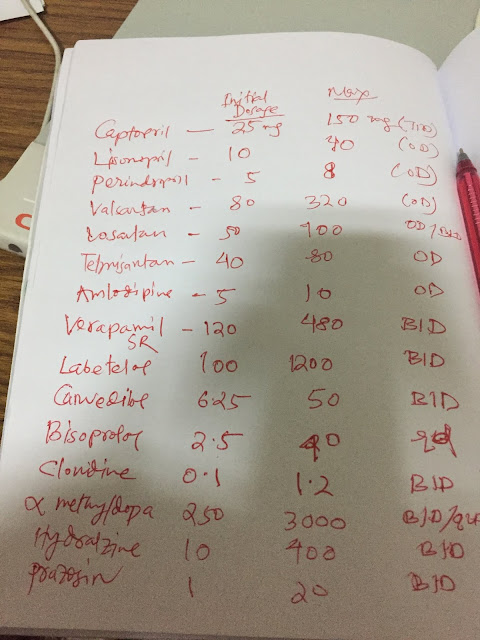 Initial
Dosage Max
Captopril — 25 mg 150 mg (TID)
Lisonopril - 10 40 (OD)
Perindropril - 5 8 (OD)
Valcartan - 80 320 (OD)
Losatan - 50 100 OD/
Telmisantan - 40 80 OD
Amlodipine - 5 10 OD
Verapamil - 120 480 BID
SR
Labetelol 100 1200 BID
Carvedilol 6.25 50 BID
Bisoprolol 2.5
Clonidine 0.1 1.2 BID
α methyldopa 250 3000 BID/
Hydralzine 10 400 BID
Prazosin 1 20 BID